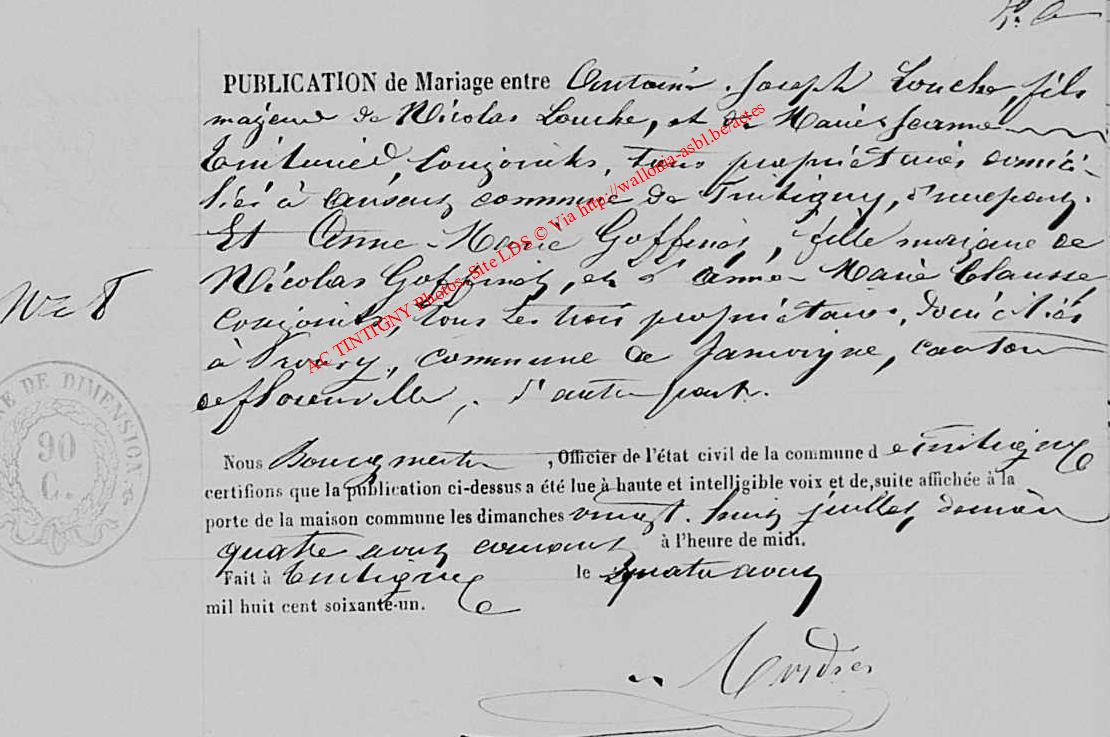 PUBLICATION de Mariage entre Antoine Joseph Louche, fils
majeur de Nicolas Louche, et de Marie Jeanne
conjoints, tous propriétaires domici-
liés à Ansart commune de Tintigny, d'une part.
Et Anne-Marie Goffinet, fille majeure de
Nicolas Goffinet, et d'Anne Marie Clausse,
conjoints, tous les trois propriétaires, domiciliés
à Prouvy, commune de Jamoigne, canton
de florenville, d'autre part.
No 8
RE DE DIMENSION
90
C.
Nous Bourgmestre, Officier de l'état civil de la commune d e Tintigny
certifions que la publication ci-dessus a été lue à haute et intelligible voix et de,suite affichée à la
porte de la maison commune les dimanches vingt-huit juillet dernier
quatre aout courant à l'heure de midi.
Fait à Tintigny le quatre aout
mil huit cent soixante-un.
AC TINTIGNY Photos-Site LDS © Via http://wallonia-asbl.be/actes